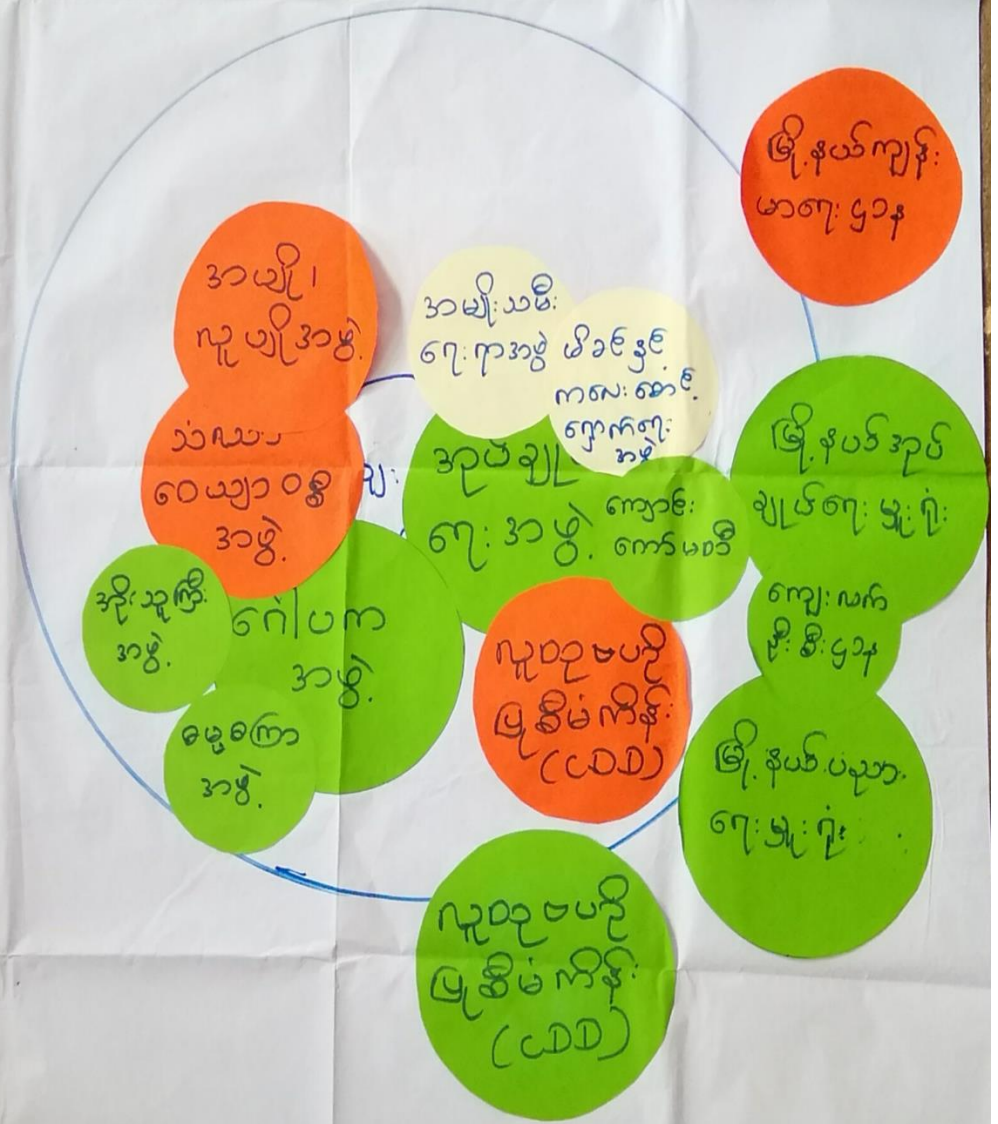 မြို့နယ်ကျန်း
မာရေးဌာန
အပျို၊
လူပျိုအဖွဲ့
အမျိုးသမီး
ရေးရာအဖွဲ့
မိခင်နှင့်
ကလေးစောင့်
ရှောက်ရေး
အဖွဲ့
သံဃာ့
ဝေယျာဝစ္စ
အဖွဲ့
အုပ်ချုပ်
ရေးအဖွဲ့
ကျောင်း
ကော်မတီ
မြို့နယ်အုပ်
ချုပ်ရေးမှူးရုံး
အိုးသူကြီး
အဖွဲ့
ဂေါပက
အဖွဲ့
ကျေးလက်
ဦးစီးဌာန
လူထုဗဟို
ပြုစီမံကိန်း
(CDD)
ဓမ္မစကြာ
အဖွဲ့
မြို့နယ်ပညာ
ရေးမှူးရုံး
လူထုဗဟို
ပြုစီမံကိန်း
(CDD)